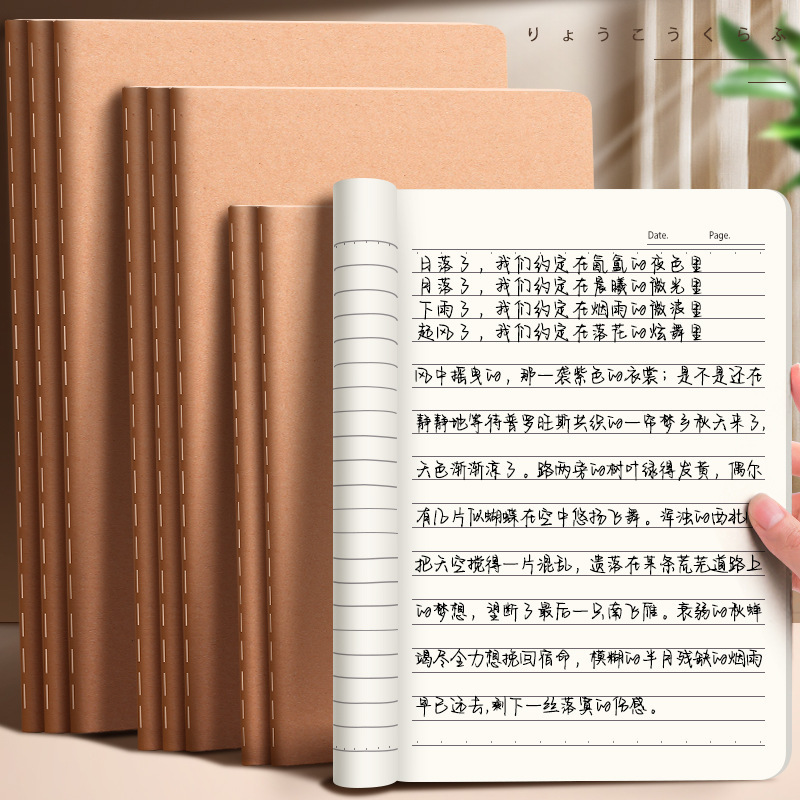 りょうこうくらふ
Date. Page.
日落了，我们约定在氤氲的夜色里
月落了，我们约定在晨曦的微光里
下雨了，我们约定在烟雨的微浪里
起风了，我们约定在落花的炫舞里
风中摇曳的，那一袭紫色的衣裳；是不是还在
静静地等待普罗旺斯共织的一帘梦乡秋天来了，
天色渐渐凉了。路两旁的树叶绿得发黄，偶尔
有几片似蝴蝶在空中悠扬飞舞。浑浊的西北
把天空搅得一片混乱，遗落在某条荒芜道路上
的梦想，望断了最后一只南飞雁。衰弱的秋蝉
竭尽全力想挽回宿命，模糊的半月残缺的烟雨
早已远去，剩下一丝落寞的伤感。